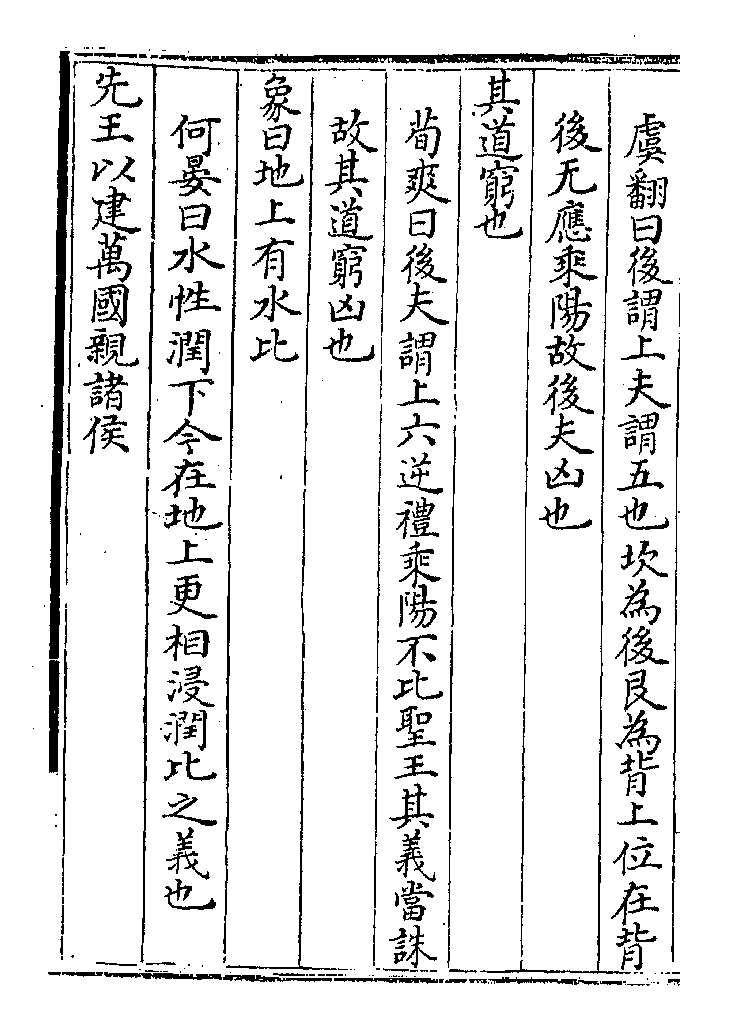 虞翻曰後謂上夫謂五也坎為後艮為背上位在背
後无應乘陽故後夫凶也
其道窮也
荀爽曰後夫謂上六逆禮乘陽不比聖王其義當誅
故其道窮凶也
象曰地上有水比
何晏曰水性潤下今在地上更相浸潤比之義也
先王以建萬國親諸侯